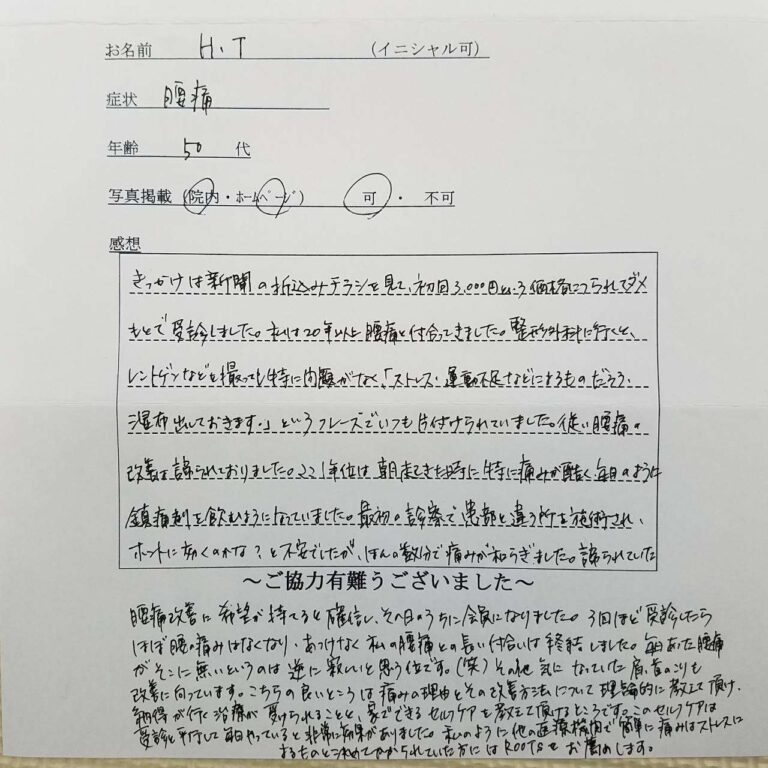 お名前 H.T (イニシャル可)
症状 腰痛
年齢 50 代
写真掲載 (院内・ホームページ) 可 ・ 不可
感想
きっかけは新聞の折込みチラシを見て、初回3,000円という価格につられてダメ
もとで受診しました。私は20年以上腰痛と付合ってきました。整形外科に行くと、
レントゲンなどを撮っても特に問題がなく、「ストレス・運動不足などによるものだろう、
湿布出しておきます。」というフレーズでいつも片付けられていました。従い腰痛の
改善は諦られておりました。ここ1年位は朝起きた時に特に痛みが酷く毎日のように
鎮痛剤を飲むようになっていました。最初の診察で患部と違う所を施術され、
ホントに効くのかな?と不安でしたが、ほんの数分で痛みが和らぎました。諦られていた
～ご協力有難うございました～
腰痛改善に希望が持てると確信し、その日のうちに会員になりました。3回ほど受診したら
ほぼ腰の痛みはなくなり、あっけなく私の腰痛との長い付合いは終結しました。毎日あった腰痛
がそこに無いというのは逆に寂しいと思う位です。(笑)その他気になっていた肩、首のこりも
改善に向っています。こちらの良いところは痛みの理由とその改善方法について理論的に教えて頂け、
納得が行く治療が受けられることと、家でできるセルフケアを教えて頂けるところです。このセルフケアは
受診と平行して毎日やっていると非常に効果がありました。私のように他の医療機関で簡単に痛みはストレスに
するものと決めてかかられていた方にはROOTSをお薦めします。